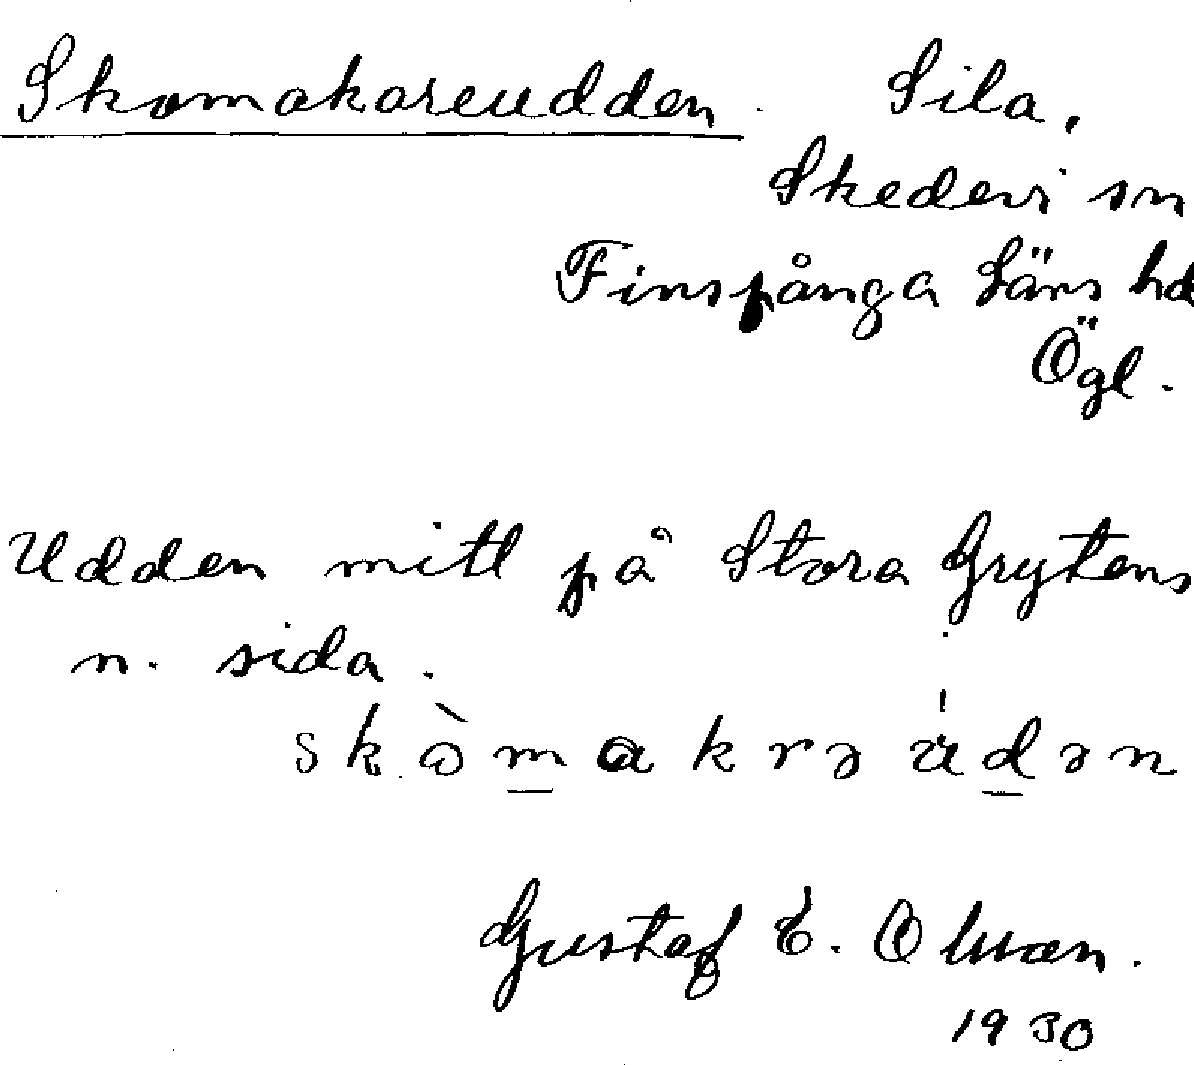 Skomakareudden. Sila,
Skedevi sn
Finspånga Läns hd
Ögl.
Udden mitt på Stora Grytens
n. sida.
skòmakrə ùdən
Gustaf E. Olsson.
1930